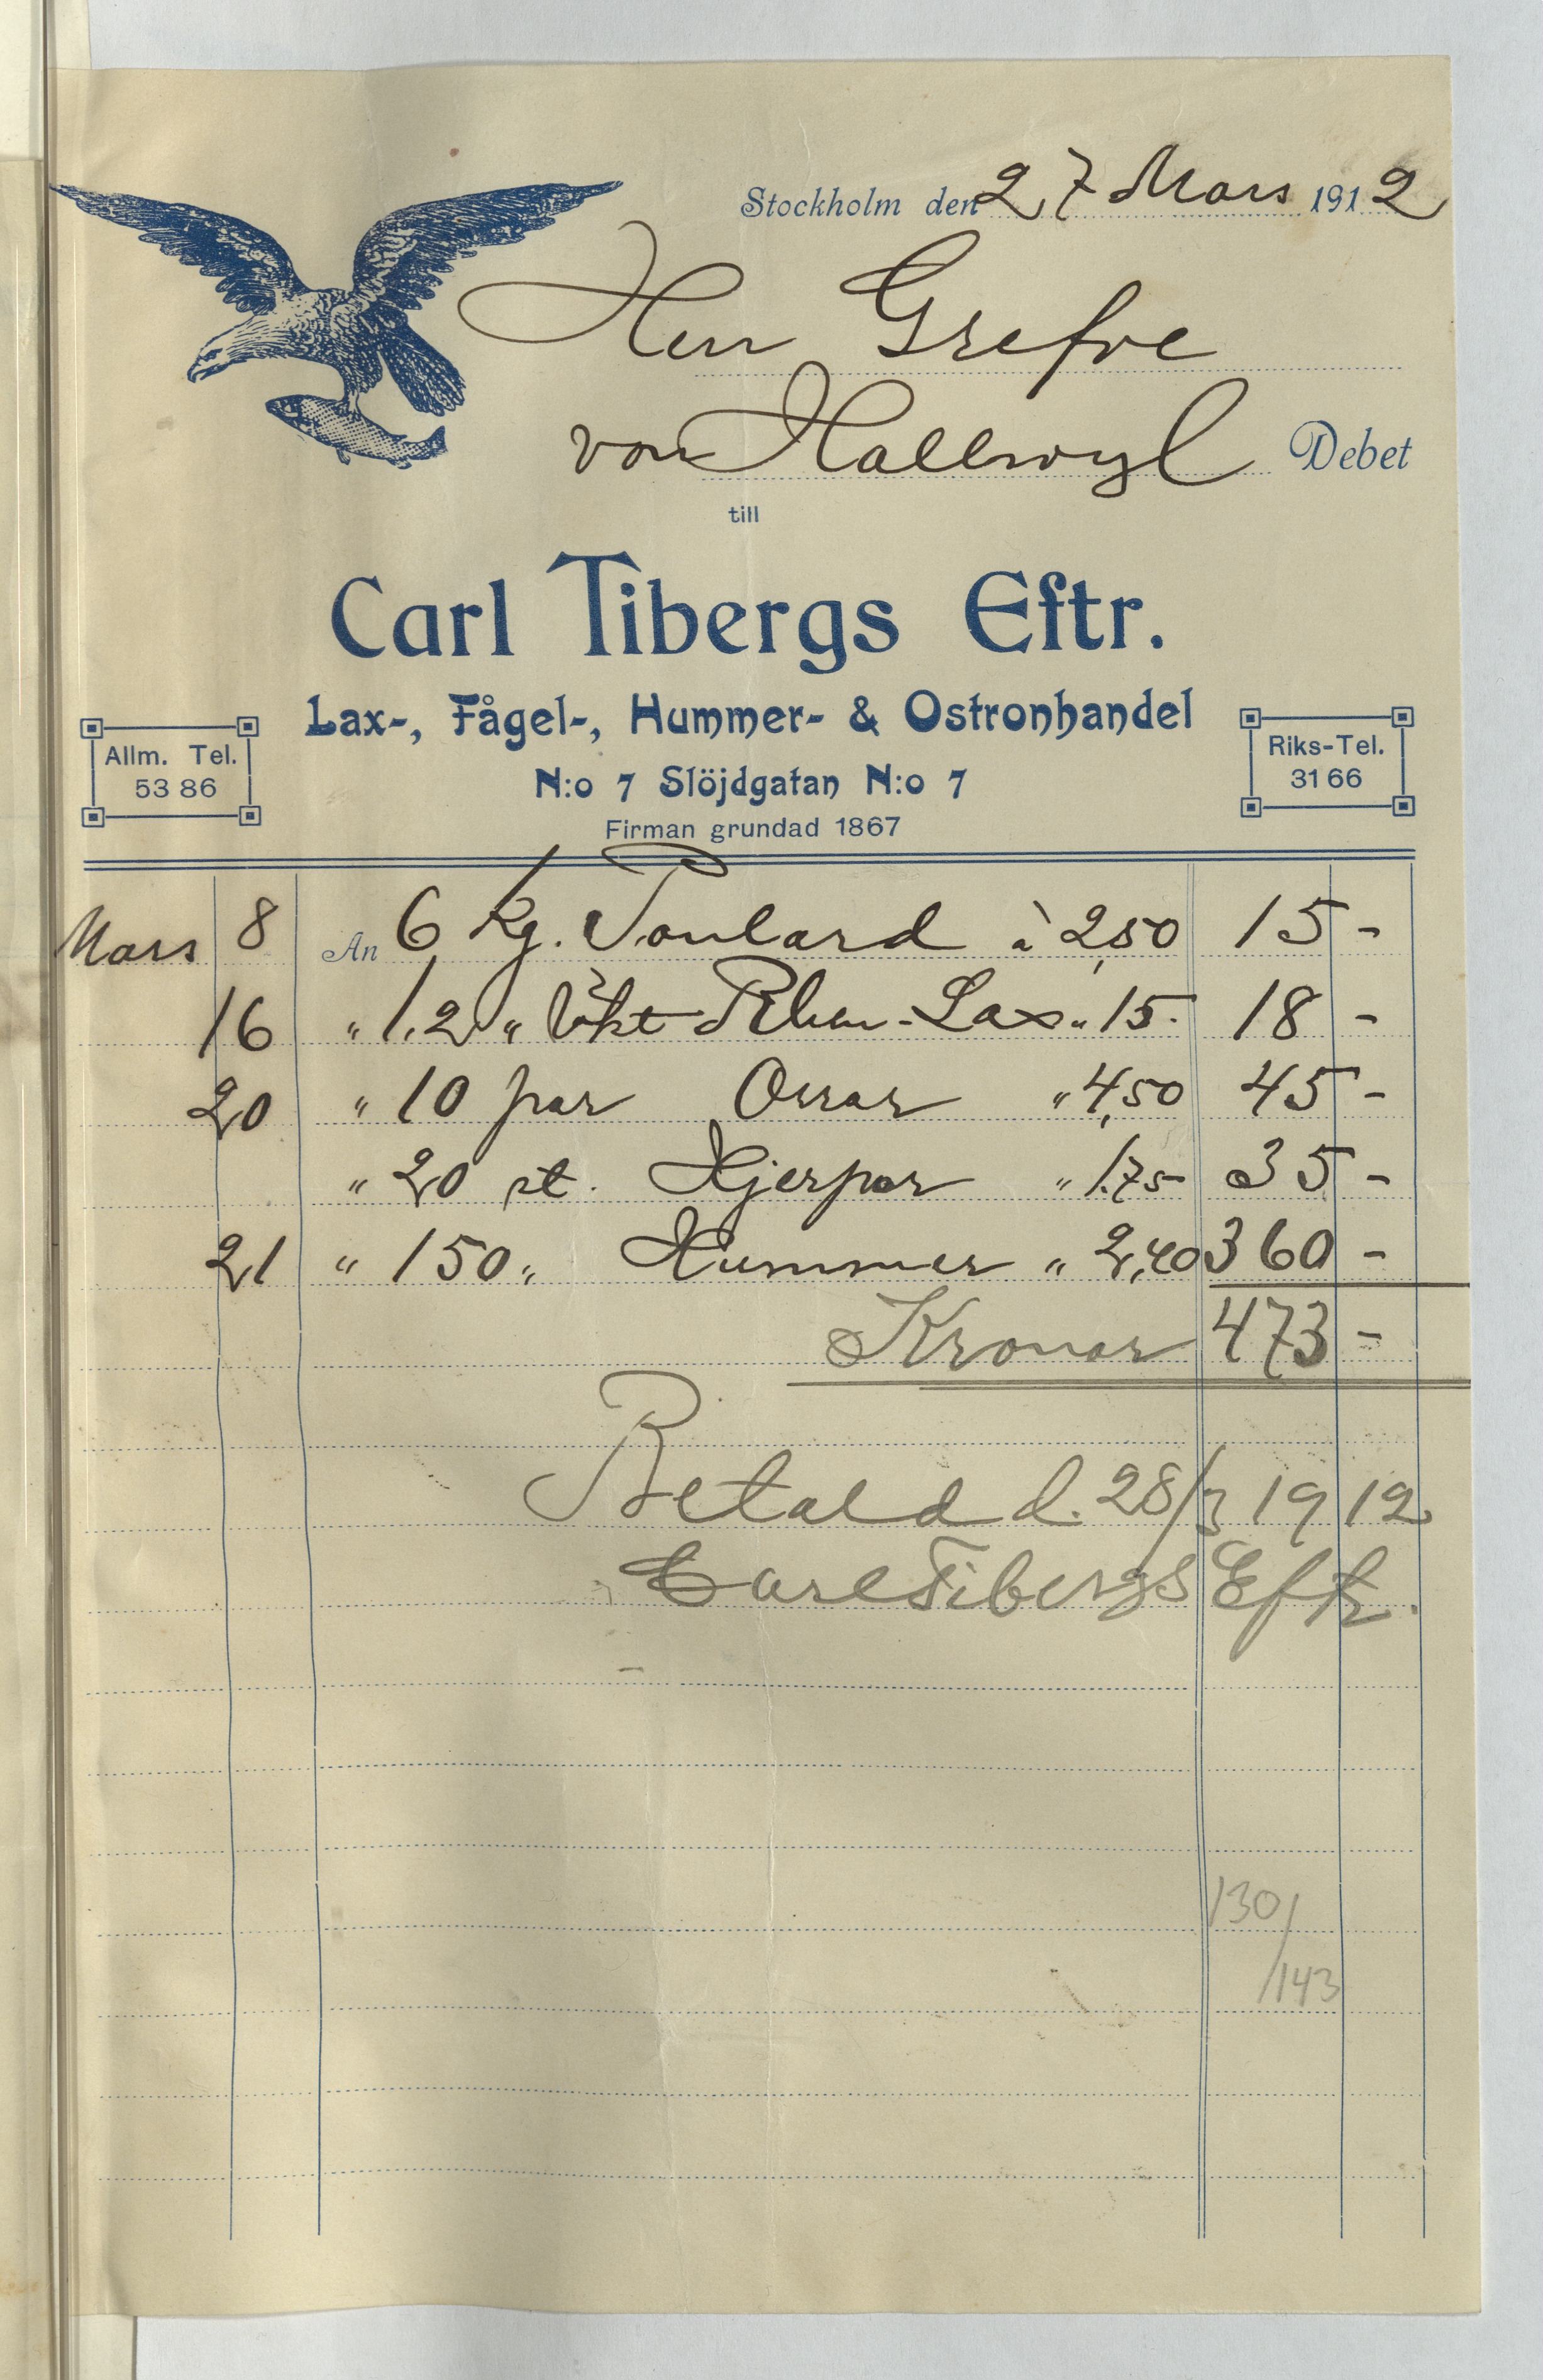 Stockholm den 27 Mars 1912
Herr Grefve
von Hallwyl Debet
till
Carl Tibergs Eftr.
Lax-, Fågel-, Hummer- & Ostronhandel
Allm. Tel.
53 86
N:o 7 Slöjdgatan N:o 7
Riks-Tel.
31 66
Firman grundad 1867
Mars 8 An 6 kg. Poulard à 2,50 15 -
16 " 1,2 " Rökt Rhen-Lax " 15.- 18 -
20 " 10 par Orrar " 4,50 45 -
" 20 st. Hjerpar " 1.75 35 -
21 " 150 " Hummer " 2,40 360 -
Kronor 473 -
Betald d. 28/3 1912
Carl Tibergs Eftr.
130/
/143